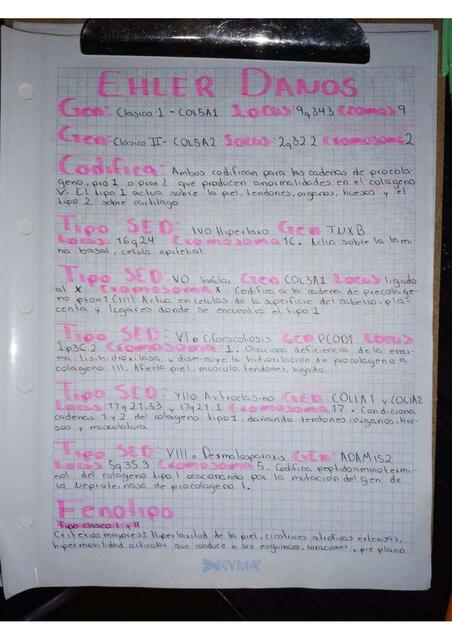 EHLER DANOS
Gen: Clasico 1 - COL5A1 Locus 9q343 Cromos 9
Gen: Clasico II - COL5A2 Locus: 2q322 Cromosoma 2
Codifica: Ambos codifican para las cadenas de procola-
geno, pro 1 o pro α 2 que producen anormalidades en el colageno
V. El tipo 1 actua sobre la piel, tendones, organos, huesos y el
tipo 2 sobre cartilago
Tipo SED: IVO Hiperlaxo Gen TNXB
Locus 16q24 Cromosoma 16. Actua sobre la lami
na basal, celula epitelial
Tipo SED: VO Gen COL3A1 Locus ligado
al X. Cromosoma X. Codifica a la cadena de procolage-
no Actua en celulas de la superficie del cabello, pla
centa y lugares donde se encuentra el tipo 1
Tipo SED: VI o Cifoescoliosis Gen PCOD1 Locus
1p36.2 Cromosoma 1. Ocaciona deficiencia de la enzi
ma y disminuye la hidroxilacion de procolageno a
colageno III. Afecta piel, musculo, tendones, higado.
Tipo SED: VIIo Gen COL1A1 y COL1A2
Locus 17q21.33 y 17q21.1 Cromosoma 17. Condiciona
cadenas 1 y 2 del colageno tipo 1, dañando tendones, organos, hue
sos y musculatura
Tipo SED: VIII o Dermatosparaxis Gen: ADAMTS2
Locus 5q35.3 Cromosoma 5. Codifica peptido aminotermi
nal del colageno tipo 1 por la mutacion del gen de
la de procolageno 1.
Fenotipo
Tipo clasico I y II
Criterios mayores: Hiperlaxitud de la piel, cicatrices atroficas extensas,
hipermovilidad articular que conduce a los esguinces, luxaciones, pie plano
KYMA